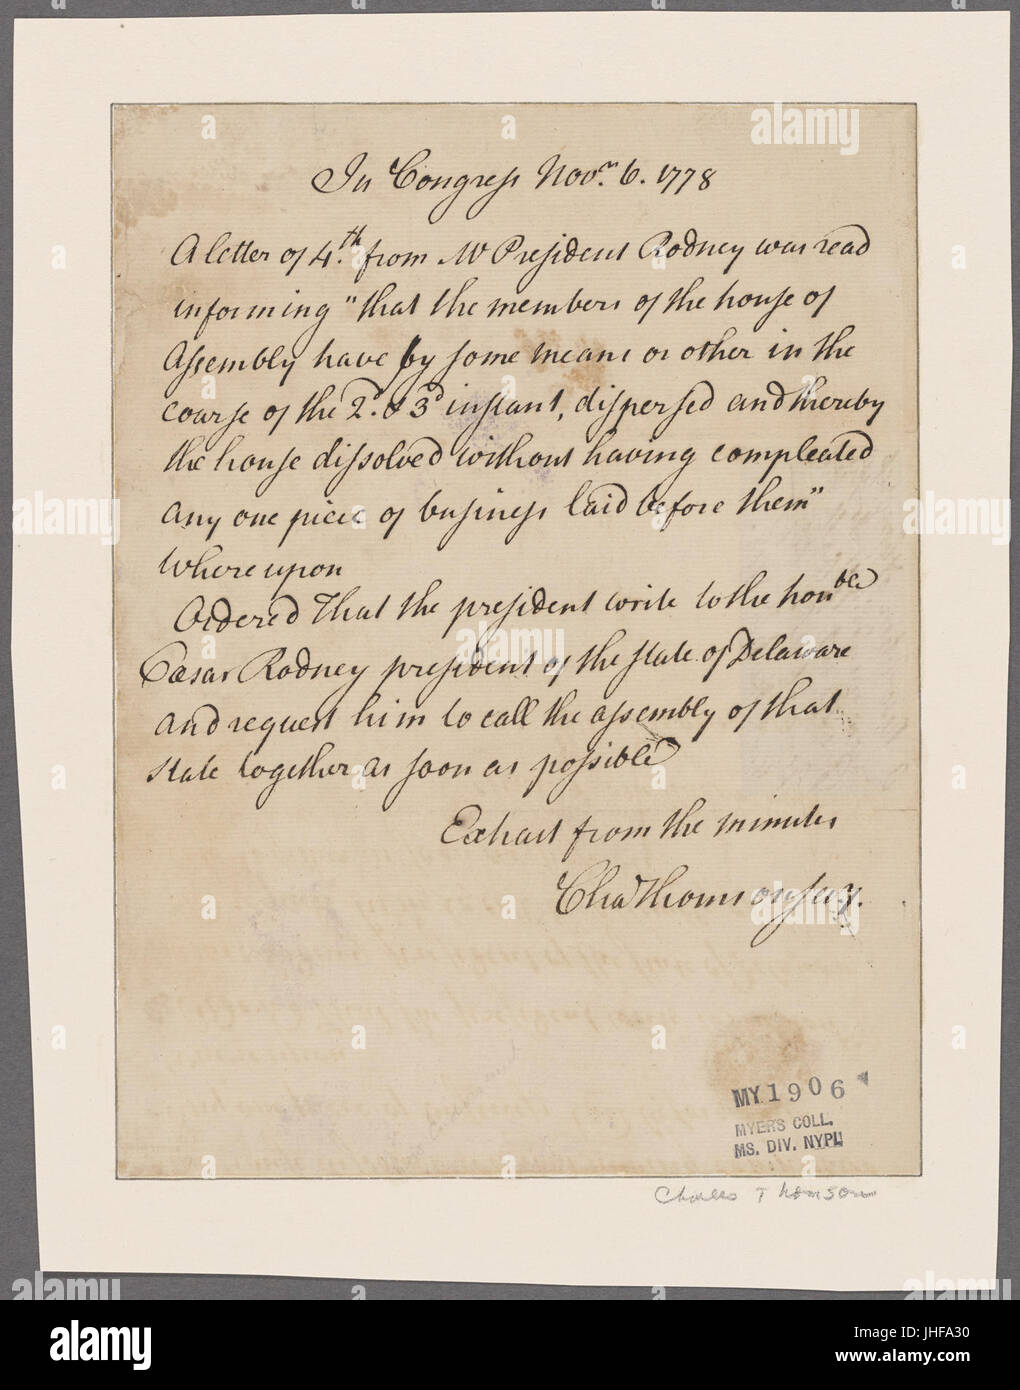 In Congress Novr. 6. 1778
A letter of 4th. from Mr President Rodney was read
informing "that the members of the house of
Assembly have by some means or other in the
course of the 2d. & 3d instant, dispersed and thereby
the house dissolved without having compleated
any one piece of business laid before them"
whereupon
Ordered That the president write to the honble
Cæsar Rodney president of the state of Delaware
and request him to call the assembly of that
state together as soon as possible
Extract from the minutes
Chas Thomson secy.
MY 1906
MYERS COLL.
MS. DIV. NYPL
Charles Thomson
alamy
Image ID: JHFA30
www.alamy.com